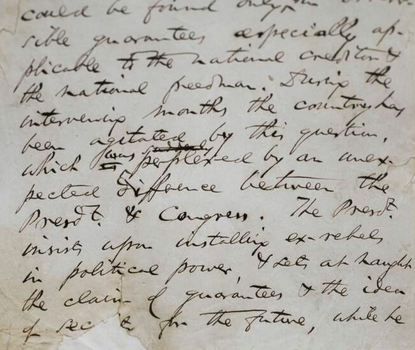 could be found only in
sible guarantees especially ap-
plicable to the national creditor &
the national freedman. During the
intervening months the country has
been agitated by this question,
which was perplexed by an unex-
pected difference between the
Presdt. & Congress. The Presdt.
insists upon installing ex-rebels
in political power, & sets at naught
the claim of guarantees & the idea
of for the future, while he